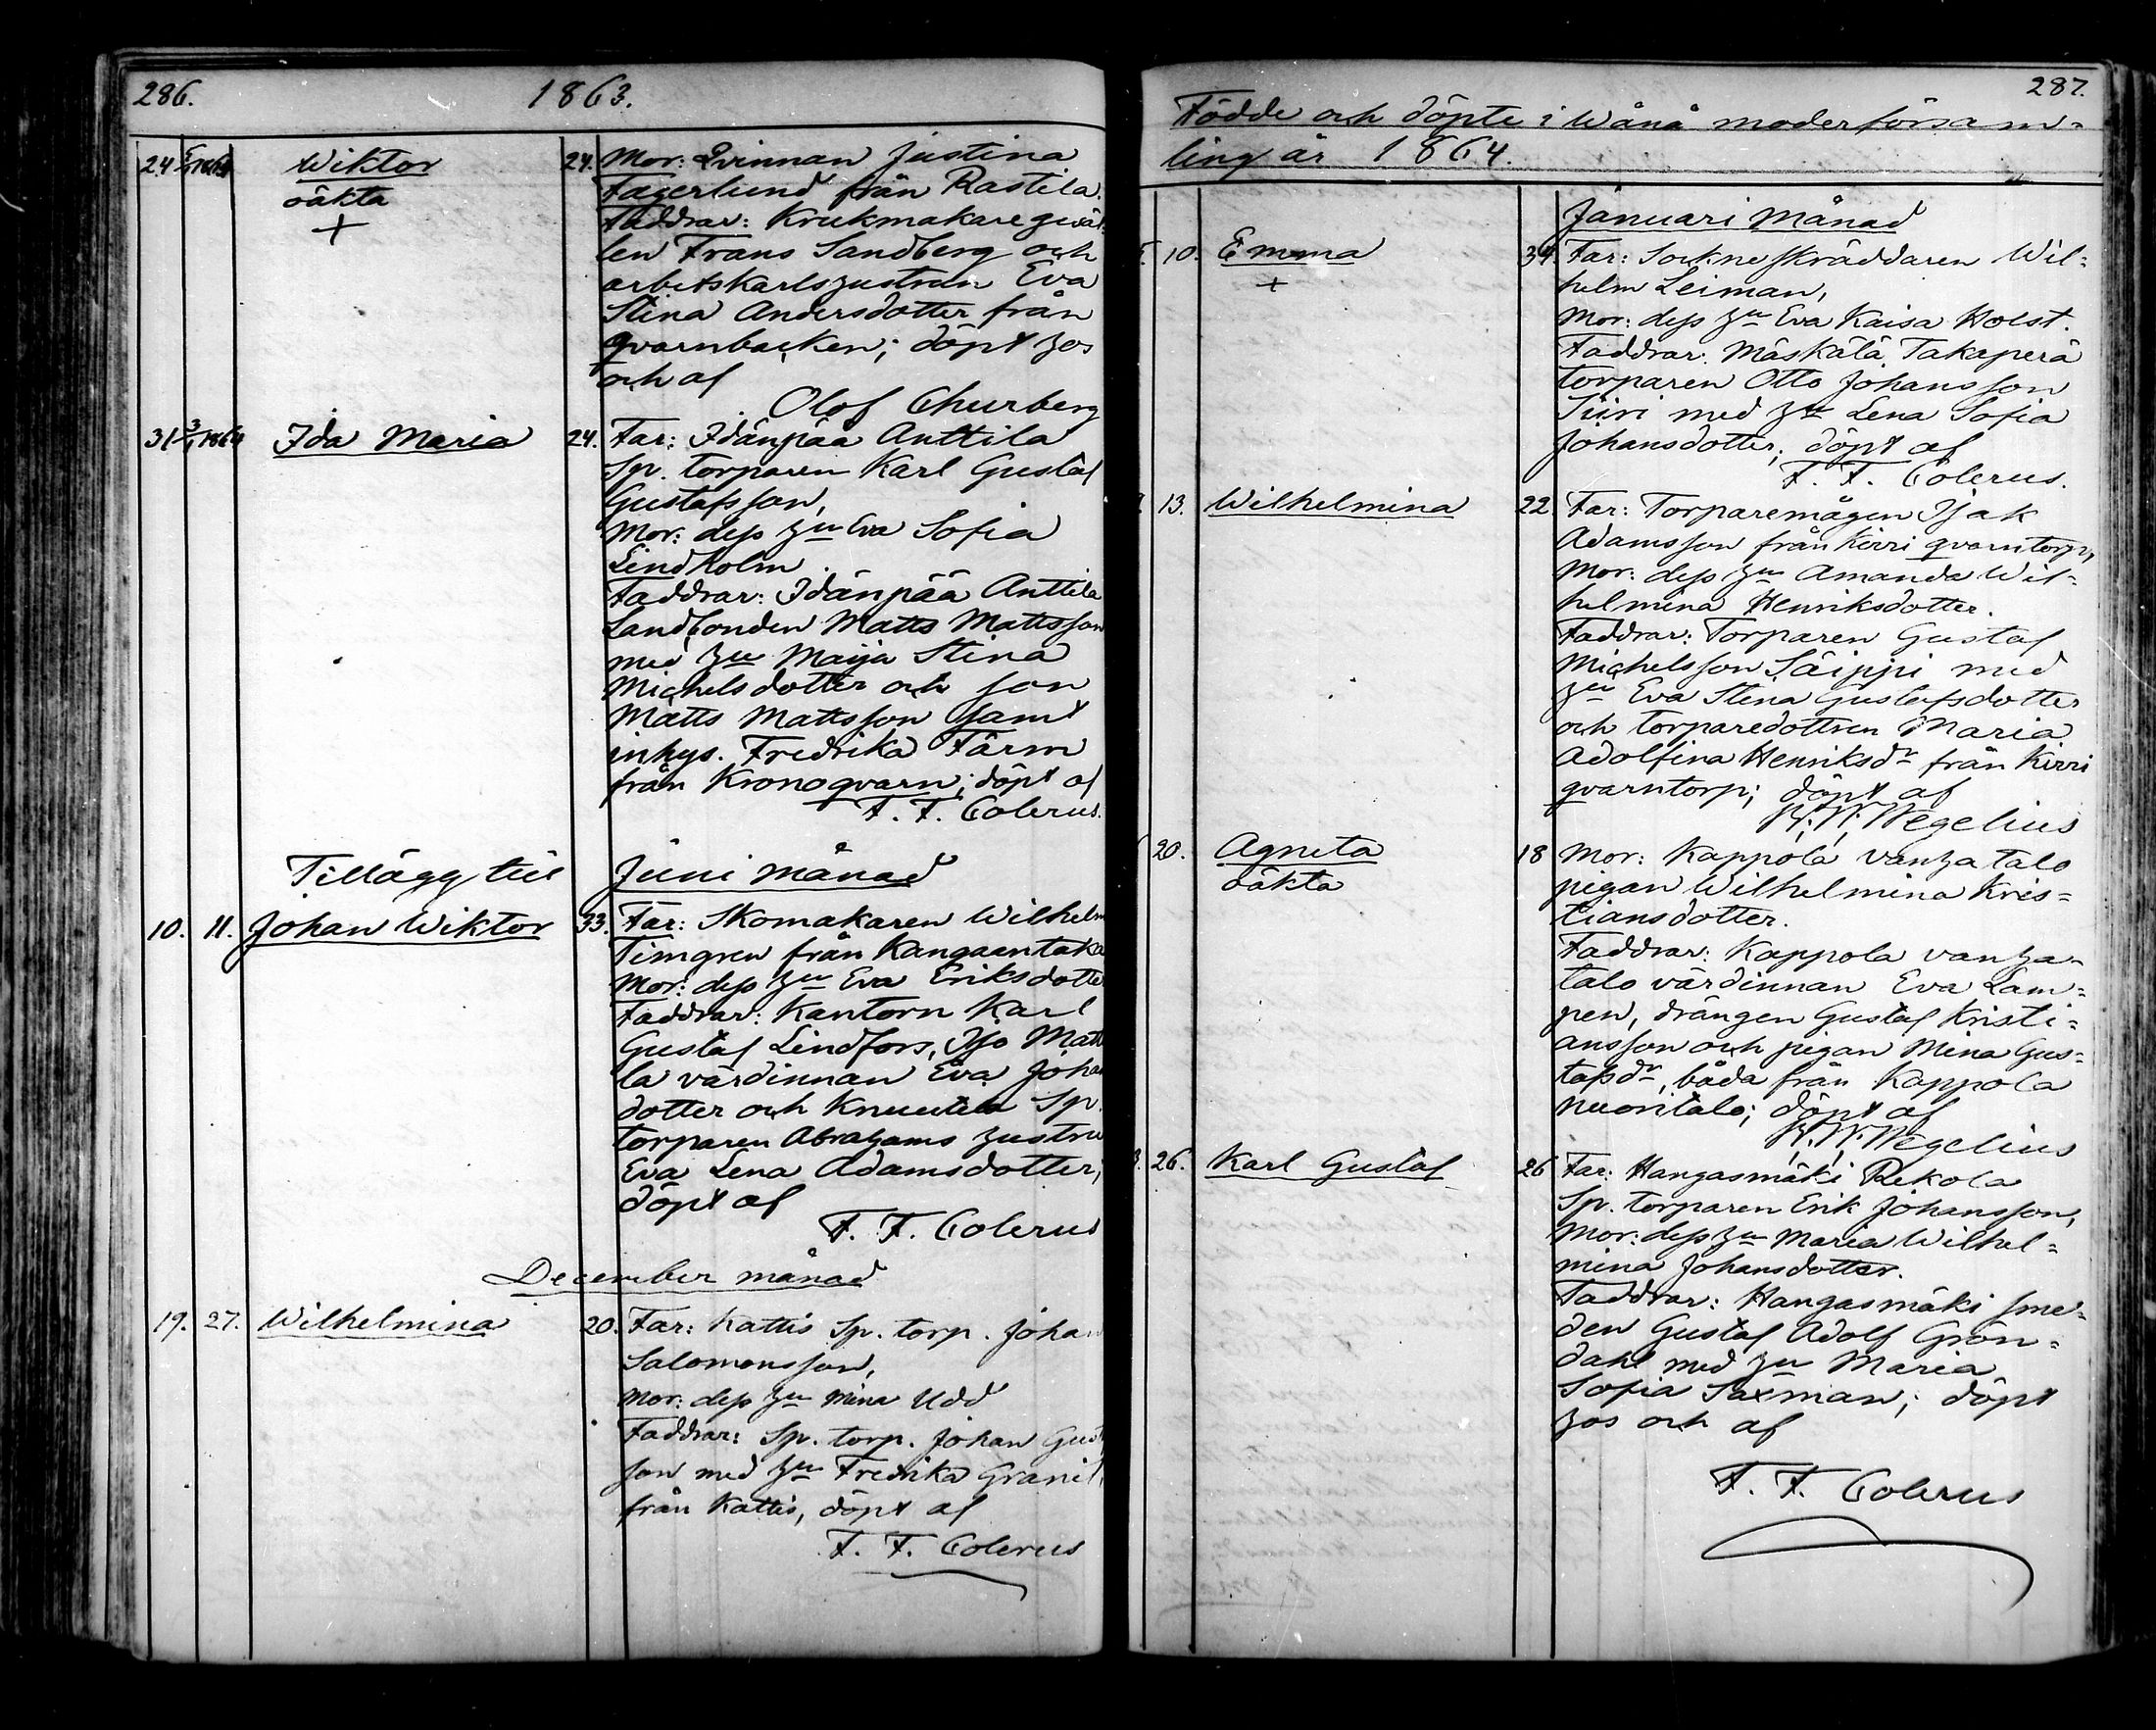 286. 1863.
24 Wiktor 24. Mor: Qvinnan Justina
oäkta Fagerlund från Rastila.
+ Faddrar: Krukmakaregesäl-
len Frans Sandberg och
arbetskarlshustrun Eva
Stina Andersdotter från
qvarnbacken; döpt hos
och af
Olof Churberg
31 3/1 1864 Ida Maria 24. Far: Idänpää Anttila
Sp. torparen Karl Gustaf
Gustafsson,
Mor: dess hu Eva Sofia
Lindholm
Faddrar: Idänpää Anttila
Landbonden Matts Mattsson
med hu Maija Stina
Michelsdotter och son
Matts Mattsson samt
inhys. Fredrika Färm
från Kronoqvarn; döpt af
F. F. Colerus.
Tillägg till Juni Månad
10. 11. Johan Wiktor 33. Far: Skomakaren Wilhelm
Timgren från Kangaantaka
Mor: dess hu Eva Eriksdotte
Faddrar: Kantorn Karl
Gustaf Lindfors, Iso Matt
la värdinnan Eva Johan
dotter och Knuutila Sp.
torparen Abrahams hustru
Eva Lena Adamsdotter;
döpt af
F. F. Colerus
December månad
19. 27. Wilhelmina 20. Far: Kattis Sp. torp. Johan
Salomonsson,
Mor: dess hu Mina Udd
Faddrar: Sp. torp. Johan Gust
son med hu Fredrika Granil
från Kattis, döpt af
F. F. Colerus
287.
Födde och döpte i Wånå moderförsam-
ling år 1864.
Januari Månad
10. Emma 34. Far: Sockneskräddaren Wil-
+ helm Leiman,
Mor: dess hu Eva Kaisa Holst.
Faddrar: Mäskälä Takaperä
torparen Otto Johansson
Siiri med hu Lena Sofia
Johansdotter; döpt af
F. F. Colerus.
13. Wilhelmina 22 Far: Torparemågen Isak
Adamsson från Kirri qvarntorp,
Mor: dess hu Amanda Wil-
helmina Henriksdotter.
Faddrar: Torparen Gustaf
Michelsson Säippi med
hu Eva Stina Gustafsdotter
och torparedottren Maria
Adolfina Henriksdr från Kirri
qvarntorp; döpt af
Wegelius
20. Agneta 18 Mor: Kappola vanha talo
oäkta pigan Wilhelmina Kris-
tiansdotter.
Faddrar: Kappola vanha-
talo värdinnan Eva Lam-
pen, drängen Gustaf Kristi-
ansson och pigan Mina Gus-
tafsdr, båda från Kappola
nuoritalo; döpt af
Wegelius
26. Karl Gustaf 26 Far: Hangasmäki Rekola
Sp. torparen Erik Johansson,
Mor: dess hu Maria Wilhel-
mina Johansdotter.
Faddrar: Hangasmäki sme-
den Gustaf Adolf Grön-
dahl med hu Maria
Sofia Saxman; döpt
hos och af
F. F. Colerus